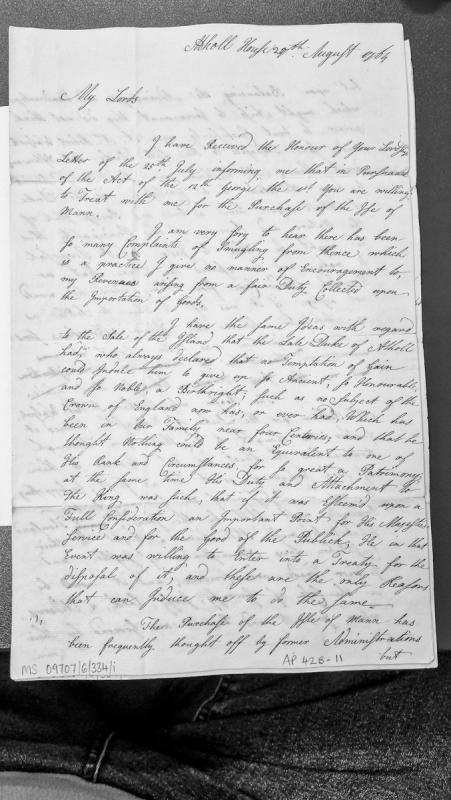 Atholl House 29th August 1764
My Lords
I have Received the Honour of Your Lordps
Letter of the 25th July informing me that in Pursuance
of the Act of the 12th George the 1st You are willing
to Treat with me for the Purchase of the Isle of
Mann.
I am very sory to hear there has been
so many Complaints of Smugling from thence which
is a practice I give no manner of Encouragement to,
my Revenues arising from a fair Duty Collected upon
the Importation of Goods.
I have the same Ideas with regard
to the Sale of the Island that the Late Duke of Atholl
had; who always declared that no Temptation of Gain
could Induce him to give up so Ancient, so Honourable,
and so Noble a Birthright; such as no Subject of the
Crown of England now has, or ever had; Which has
been in our Family near four Centuries; and that he
thought Nothing could be an Equivalent to one of
His Rank and Circumstances for so great a Patrimony;
at the same time His Duty and Attachment to
The King was such, that if it was Esteem'd upon a
Full Consideration an Important Point for His Majesties
Service and for the good of the Publick, He in that
Event was willing to Enter into a Treaty for the
disposal of it, and these are the only Reasons
that can Induce me to do the same.
The Purchase of the Isle of Mann has
been frequently thought off by former Administrations
but
MS 09707/6/334/i
AP 42B-11